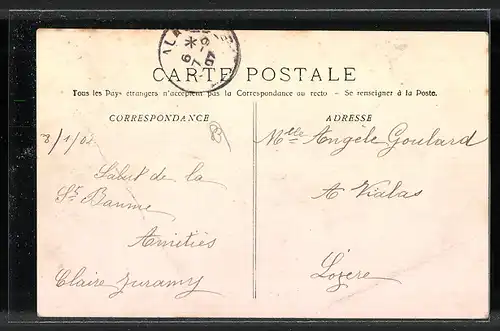 CARTE POSTALE
Tous les Pays étrangers n'acceptent pas la Correspondance au recto — Se renseigner à la Poste.
CORRESPONDANCE
ADRESSE
Salut de la
Ste Baume
Amitiés
Claire Juramy
Melle Angèle Goulard
A Vialas
Lozère